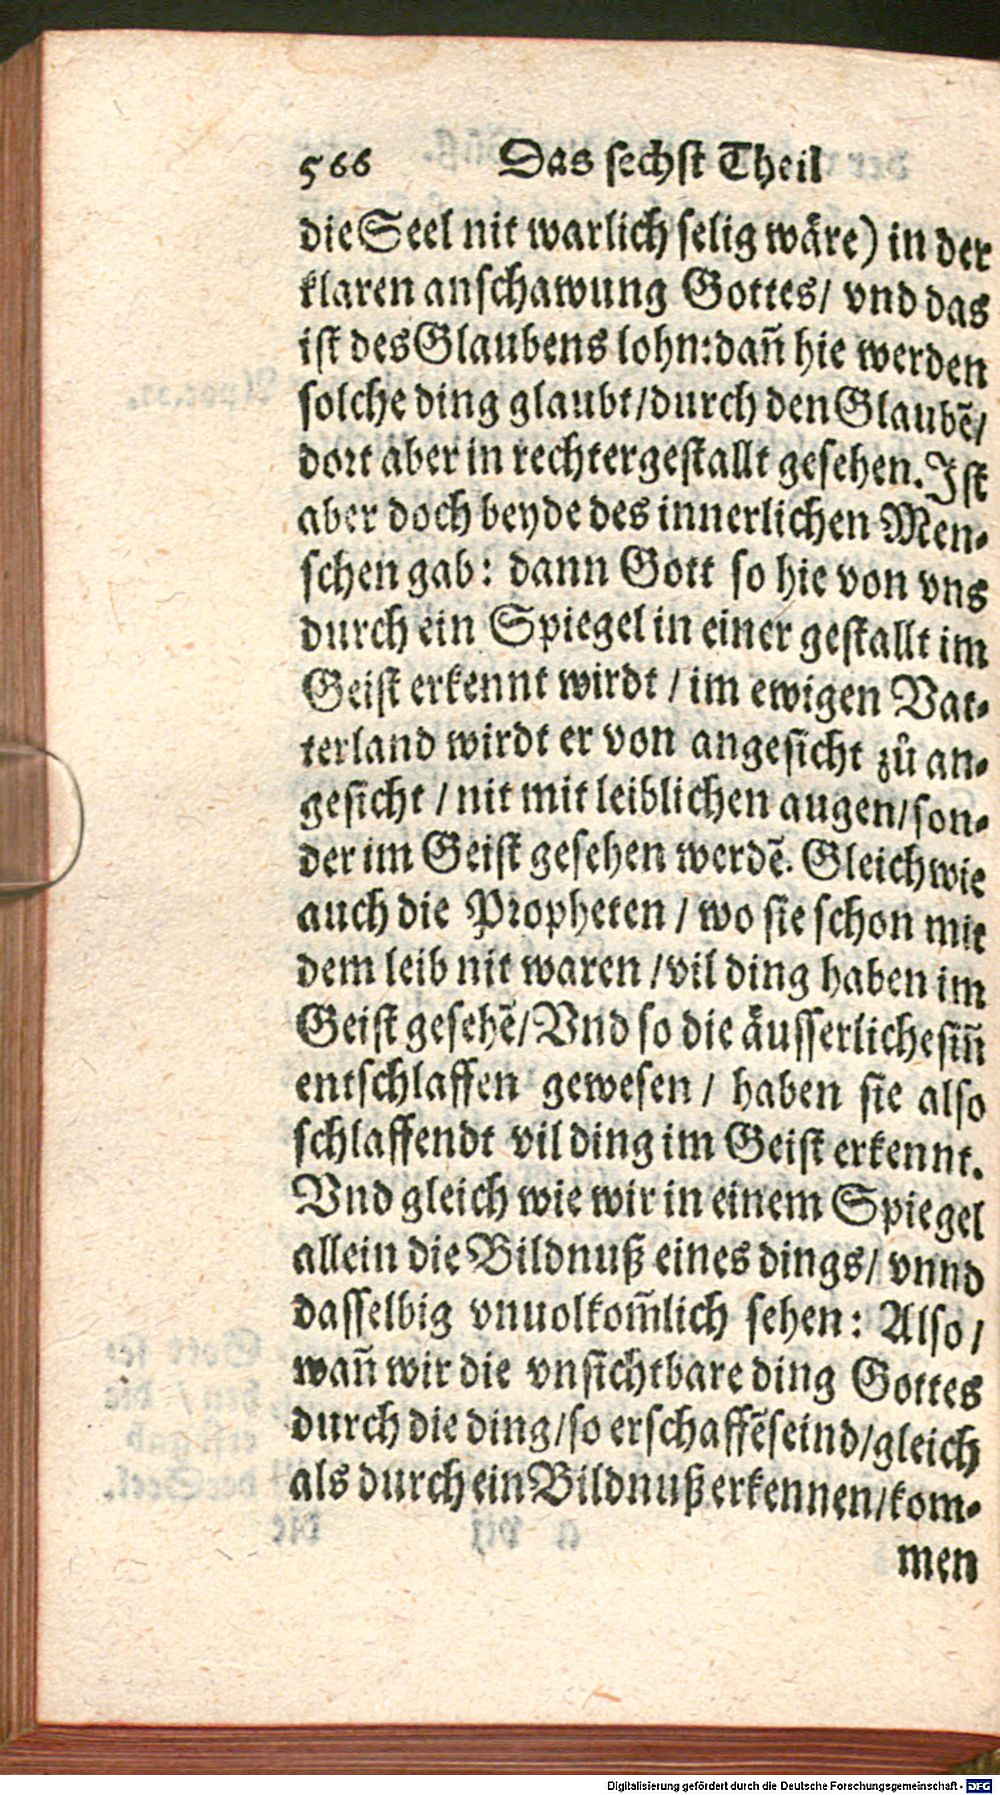 566 Das sechst Theil
die Seel nit warlich selig wäre) in der
klaren anschawung Gottes/ vnd das
ist des Glaubens lohn: dañ hie werden
solche ding glaubt/durch den Glaubẽ/
dort aber in rechter gestallt gesehen. Ist
aber doch beyde des innerlichen Men-
schen gab: dann Gott so hie von vns
durch ein Spiegel in einer gestallt im
Geist erkennt wirdt / im ewigen Vat-
terland wirdt er von angesicht zů an-
gesicht / nit mit leiblichen augen/son-
der im Geist gesehen werdẽ. Gleich wie
auch die Propheten / wo sie schon mit
dem leib nit waren /vil ding haben im
Geist gesehẽ/ Vnd so die äusserliche siñ
entschlaffen gewesen / haben sie also
schlaffendt vil ding im Geist erkennt.
Vnd gleich wie wir in einem Spiegel
allein die Bildnuß eines dings/ vnnd
dasselbig vnuolkom̃lich sehen: Also/
wañ wir die vnsichtbare ding Gottes
durch die ding/so erschaffẽ seind/gleich
als durch ein Bildnuß erkennen/kom-
men
Digitalisierung gefördert durch die Deutsche Forschungsgemeinschaft - DFG